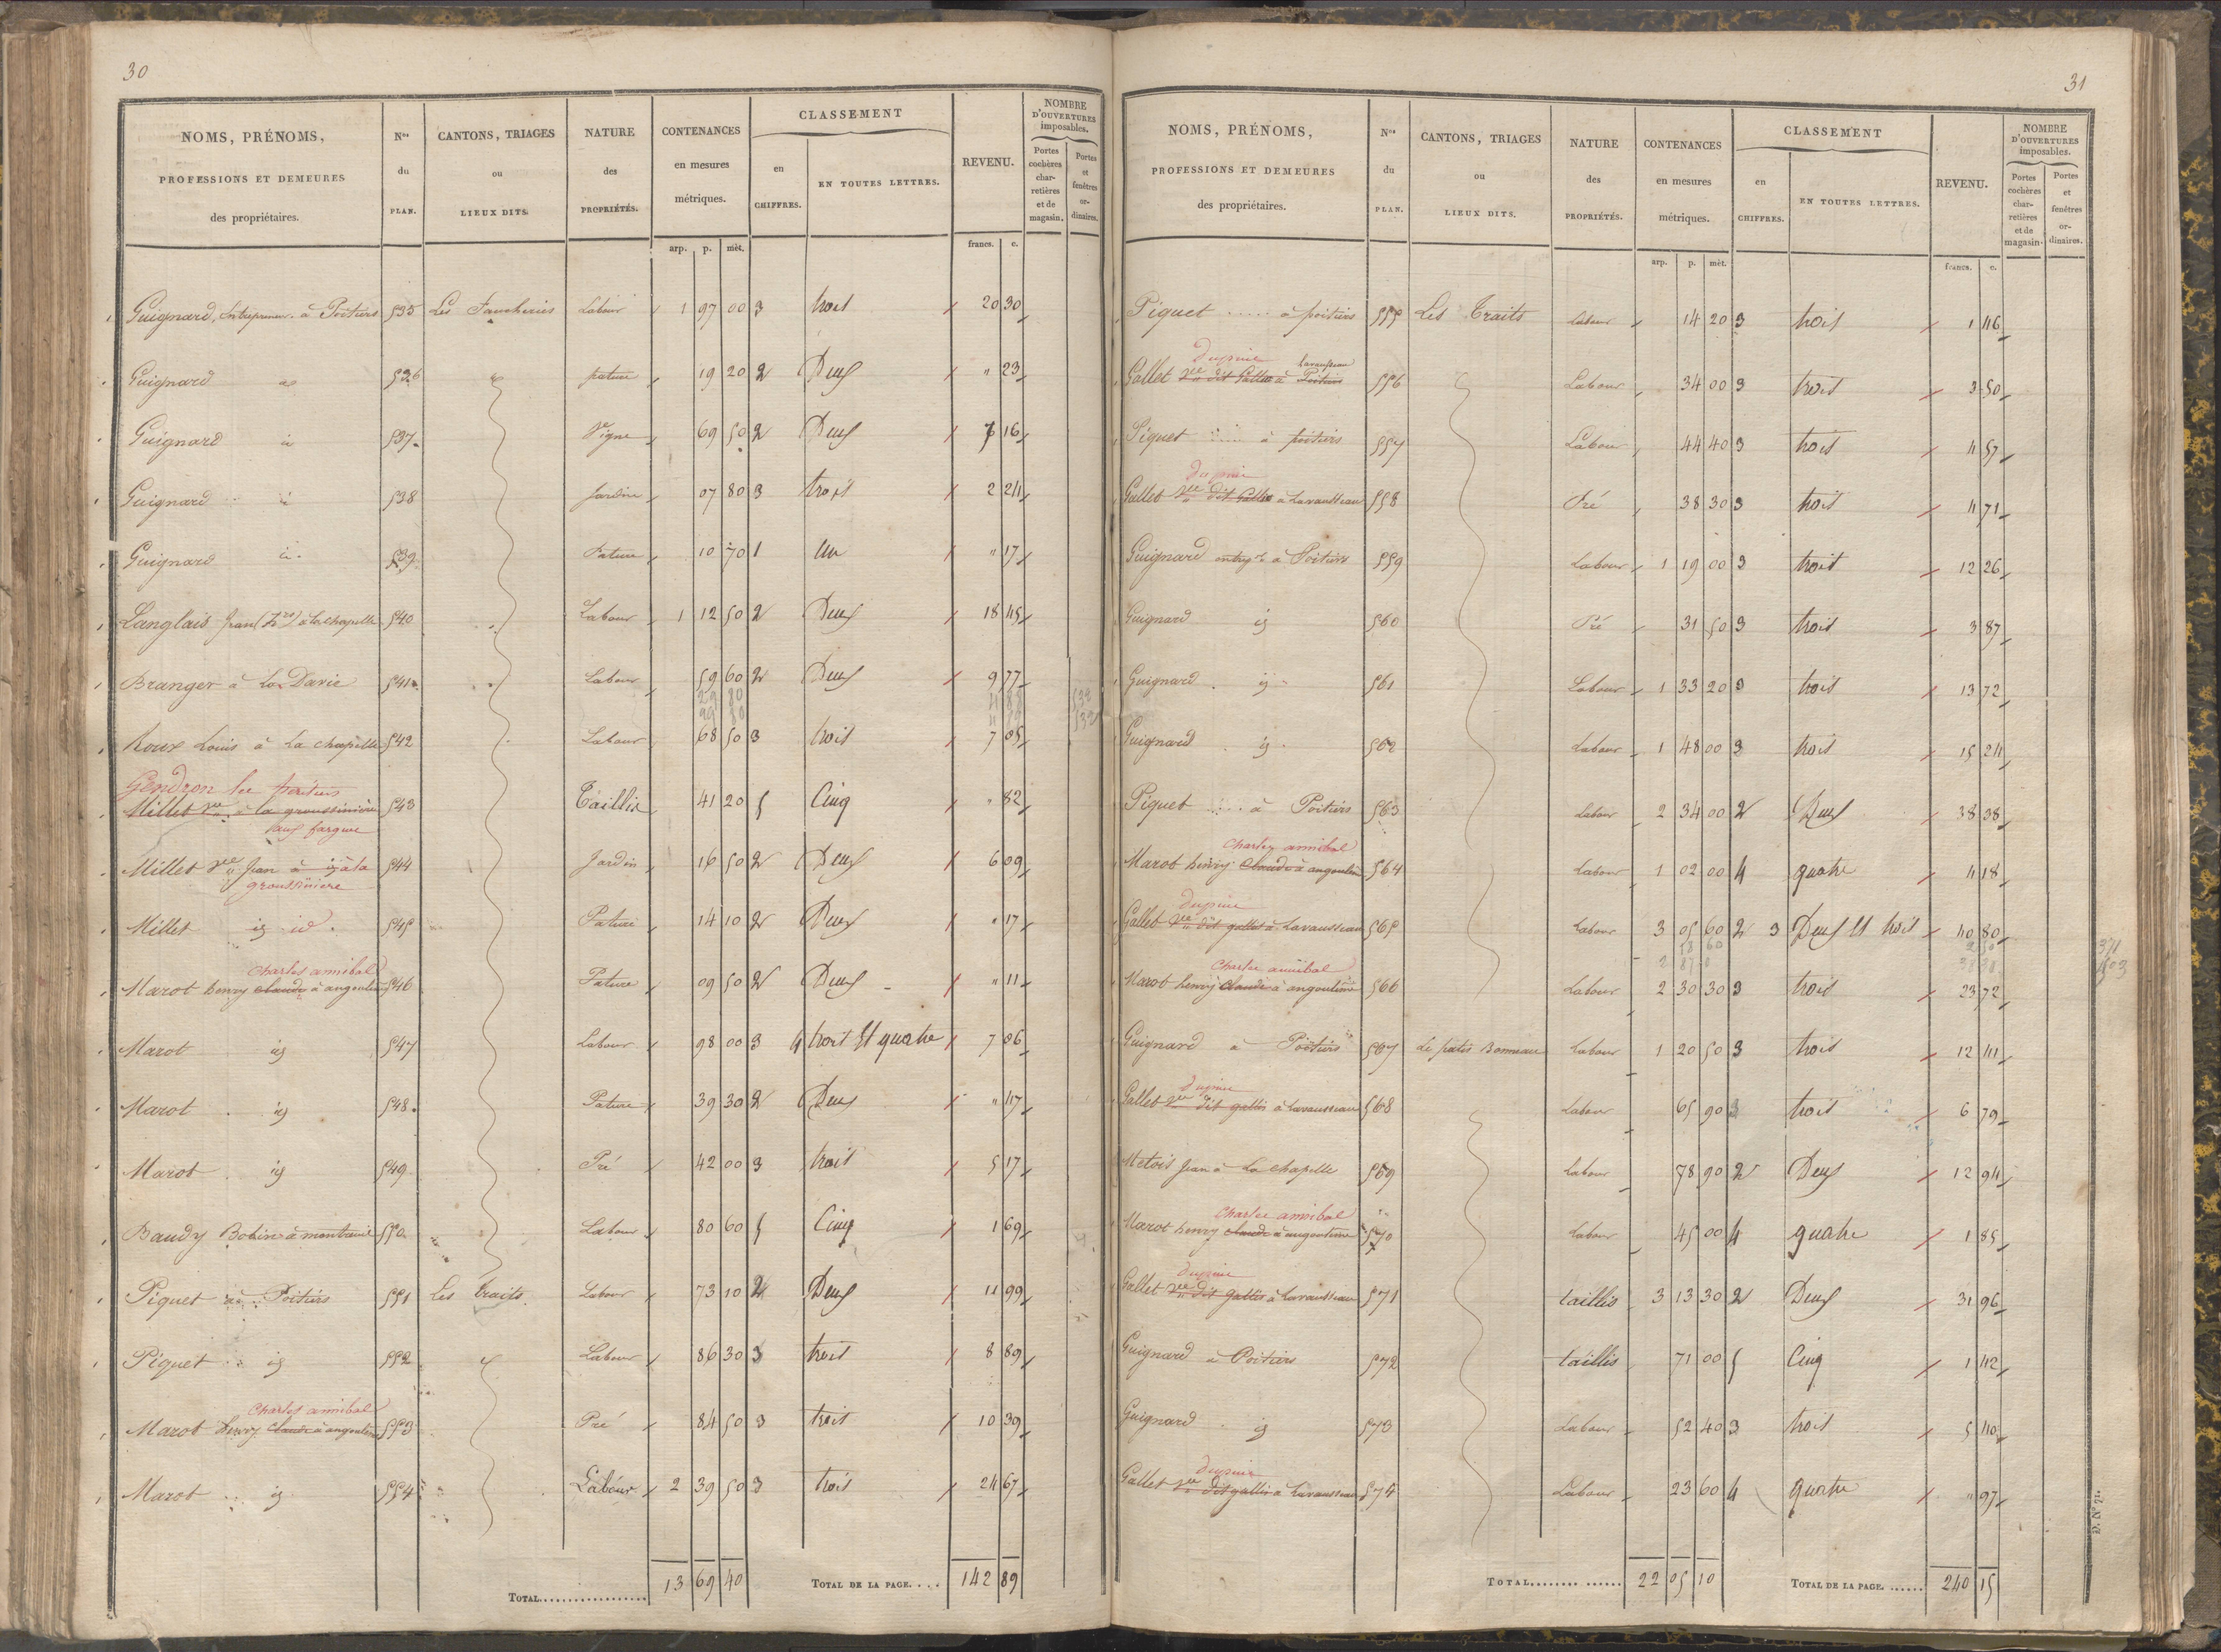 30
NOMS, PRÉNOMS, PROFESSIONS ET DEMEURES des propriétaires. Nos du PLAN. CANTONS, TRIAGES ou LIEUX DITS. NATURE des PROPRIÉTÉS. CONTENANCES en mesures métriques. CLASSEMENT en CHIFFRES. EN TOUTES LETTRES. REVENU. NOMBRE D'OUVERTURES imposables. Portes cochères charretières et de magasin. Portes et fenêtres ordinaires.
arp. p. mèt. francs. c.
Guignard, Entrepreneur à Poitiers 535 Les Faucheries Labour 1 97 00 3 trois 20 30
Guignard 536 pature 19 20 2 Deux " 23
Guignard 537 Vigne 69 50 2 Deux 7 16
Guignard 538 Jardin 07 80 3 trois 2 24
Guignard 539 Pature 10 70 1 Un " 17
Langlais Jean à la chapelle 540 Labour 1 12 50 2 Deux 18 45
Branger à la Davie 541 Labour 59 60 2 Deux 9 77
29 80
29 80
Roux Louis à la chapelle 542 Labour 68 50 3 trois 7 05
Gendron les héritiers
Millet Ve à la groussinière 543 Taillis 41 20 5 Cinq " 82
Millet Ve Jean à la 544 Jardin 16 50 2 Deux 6 09
groussiniere
Millet ig id 545 Pature 14 10 2 Deux " 17
Charles annibal
Marot henry Claude à angoulême 546 Pature 09 50 2 Deux " 11
Marot ig 547 Labour 98 00 3 4 trois et quatre 7 06
Marot ig 548 Pature 39 30 2 Deux " 47
Marot ig 549 Pré 42 00 3 trois 5 17
Baudy Bobin à montreuil 550 Labour 80 60 5 Cinq 1 69
Piquet à Poitiers 551 Les traits Labour 73 10 2 Deux 11 99
Piquet ig 552 Labour 86 30 3 trois 8 89
Charles annibal
Marot henry Claude à angoulême 553 Pré 84 50 3 trois 10 39
Marot ig 554 Labour 2 39 50 3 trois 24 67
TOTAL 13 69 40 TOTAL DE LA PAGE.... 142 89
31
NOMS, PRÉNOMS, PROFESSIONS ET DEMEURES des propriétaires. Nos du PLAN. CANTONS, TRIAGES ou LIEUX DITS. NATURE des PROPRIÉTÉS. CONTENANCES en mesures métriques. CLASSEMENT en CHIFFRES. EN TOUTES LETTRES. REVENU. NOMBRE D'OUVERTURES imposables. Portes cochères charretières et de magasin. Portes et fenêtres ordinaires.
arp. p. mèt. francs. c.
Piquet à poitiers 555 Les Traits Labour 14 20 3 trois 1 46
Dupuie lavausseau
Gallet Ve dit Gallet à Poitiers 556 Labour 34 00 3 trois 3 50
Piquet à poitiers 557 Labour 44 40 3 trois 4 57
dupuie
Gallet Ve dit Gallet à Lavausseau 558 Pré 38 30 3 trois 4 71
Guignard entrepr à Poitiers 559 Labour 1 19 00 3 trois 12 26
Guignard ig 560 Pré 31 50 3 trois 3 87
Guignard ig 561 Labour 1 33 20 3 trois 13 72
Guignard ig 562 Labour 1 48 00 3 trois 15 24
Piquet à Poitiers 563 Labour 2 34 00 2 Deux 38 38
Charles annibal
Marot henry Claude à angoulême 564 Labour 1 02 00 4 quatre 4 18
dupuie
Gallet Ve dit gallet à Lavausseau 565 Labour 3 05 60 2 3 Deux et trois 40 80
Charles annibal
Marot henry Claude à angoulême 566 Labour 2 30 30 3 trois 23 72
Guignard à Poitiers 567 Le patis Bonneau Labour 1 20 50 3 trois 12 41
dupuie
Gallet Ve dit gallet à Lavausseau 568 Labour 65 90 3 trois 6 79
Metois Jean à la chapelle 569 Labour 78 90 2 Deux 12 94
Charles annibal
Marot henry Claude à angoulême 570 Labour 45 00 4 quatre 1 85
dupuie
Gallet Ve dit gallet à Lavausseau 571 taillis 3 13 30 2 Deux 31 96
Guignard à Poitiers 572 taillis 71 00 5 Cinq 1 42
Guignard ig 573 Labour 52 40 3 trois 5 40
dupuie
Gallet Ve dit gallet à Lavausseau 574 Labour 23 60 4 quatre " 97
TOTAL 22 05 10 TOTAL DE LA PAGE. 240 15
D. No 21.